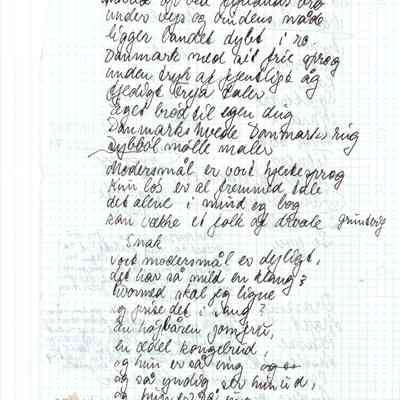 under sejr og vindens nåde
ligger landet dybt i ro.
Danmark med sit frie sprog
unden tryk af fjendtligt åg
frejdigt frya taler
Eget brød til egen dug
Danmarks hvede Danmarks rug
Dybbøl mølle maler
Modersmål er vort hjertesprog
kun løs er al fremmed tale
det alene i mund og bog
kan vække et folk af dvale grundtvig
Smak
vort modersmål er dejligt,
det har så mild en klang?
hvormed skal jeg ligne
og prise det i sang?
En højbåren jomfru,
en ædel kongebrud,
og hun er så ung og er
og så yndig ser hun ud,
og hun er så ung